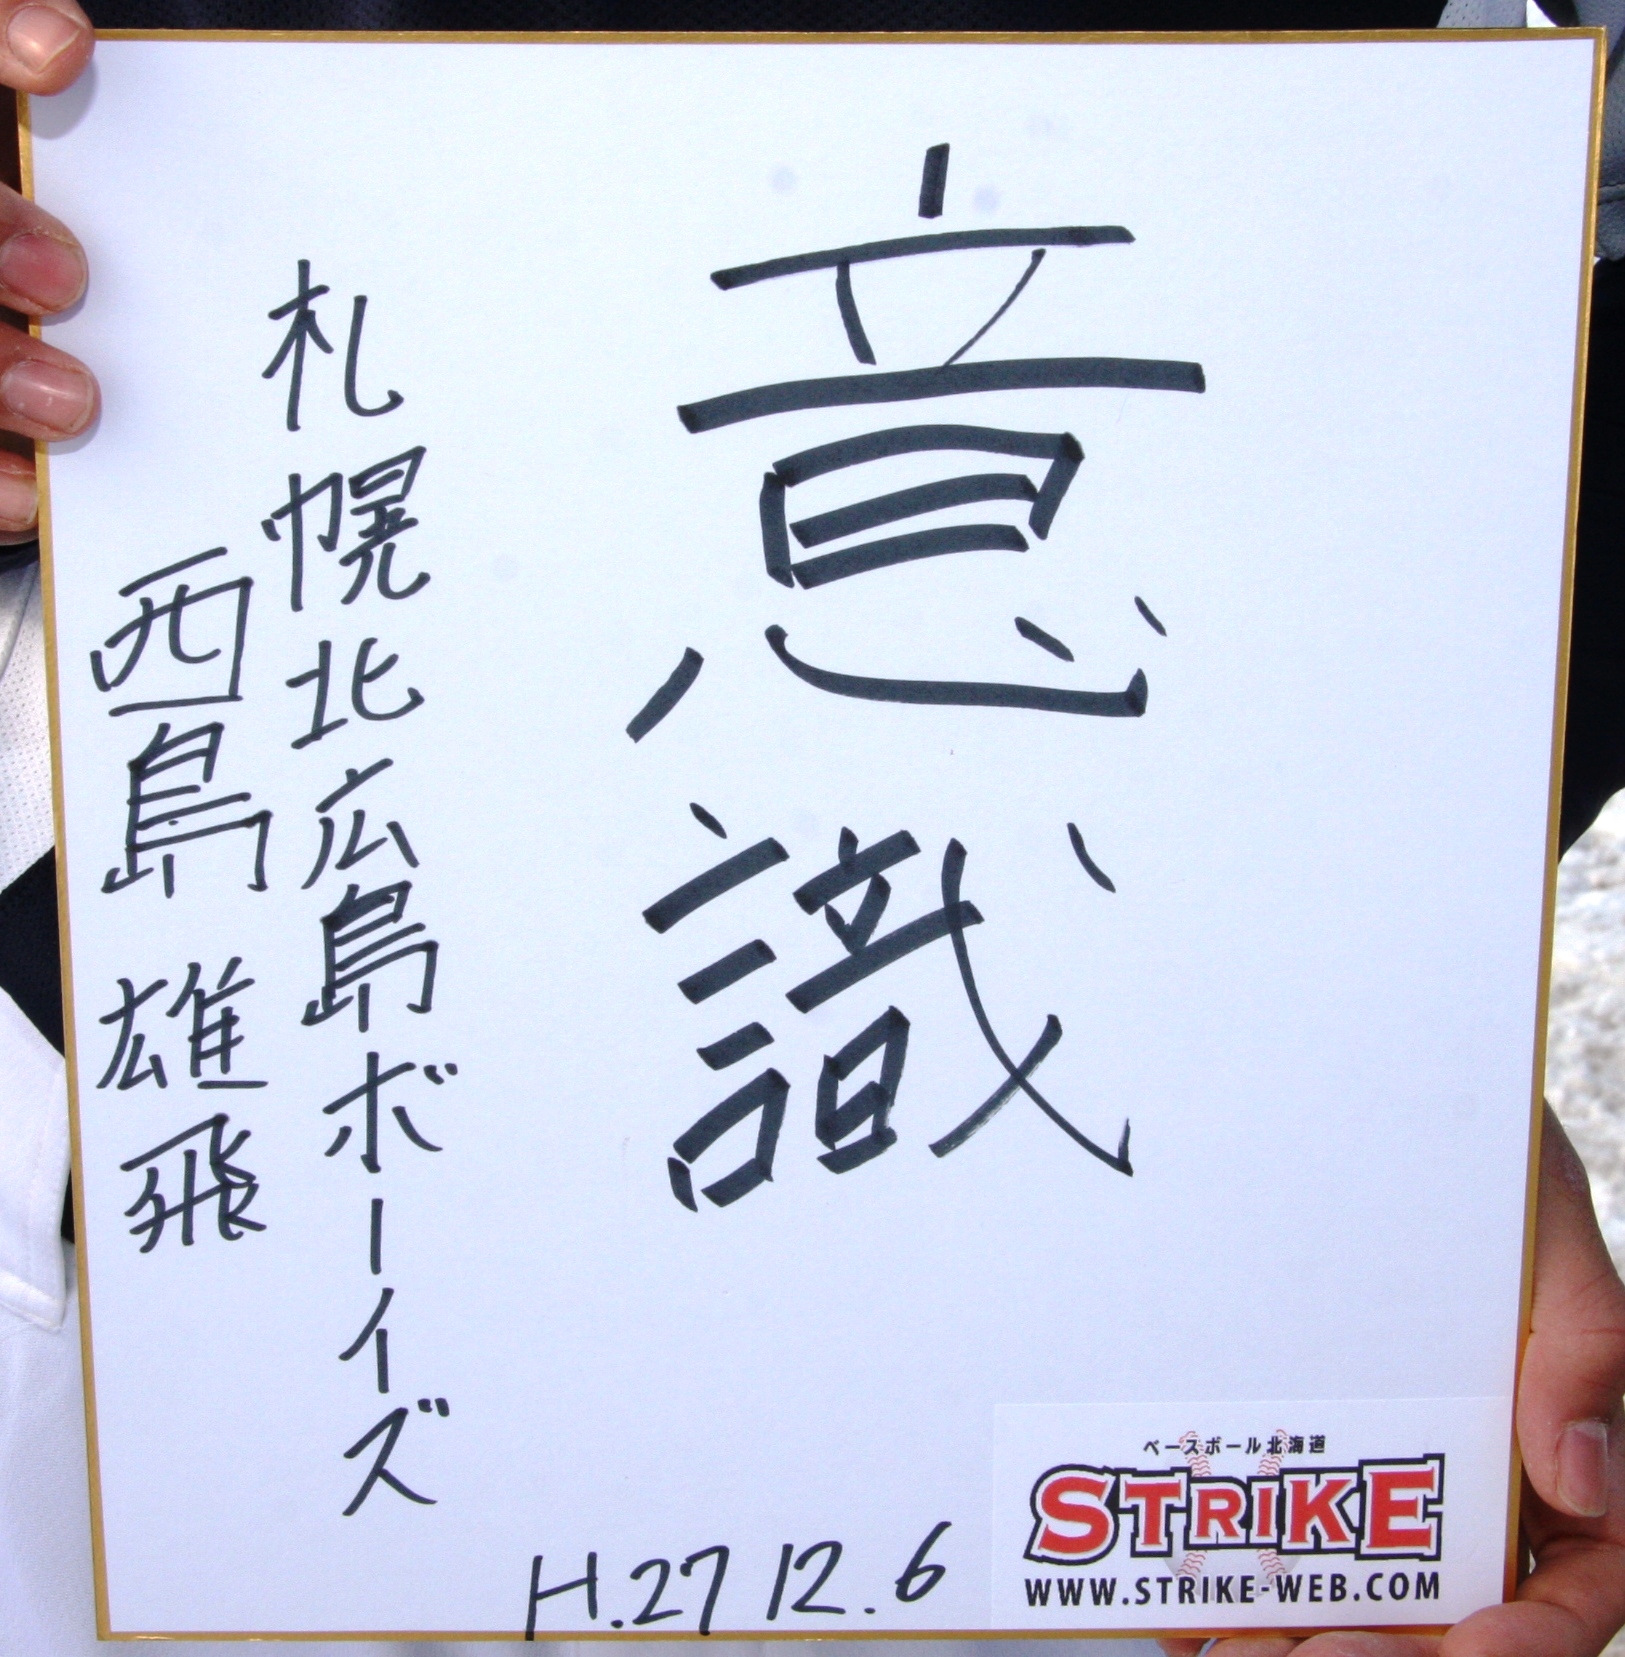 意識
札幌北広島ボーイズ
西島 雄飛
H.27 12.6
ベースボール北海道
STRIKE
WWW.STRIKE-WEB.COM